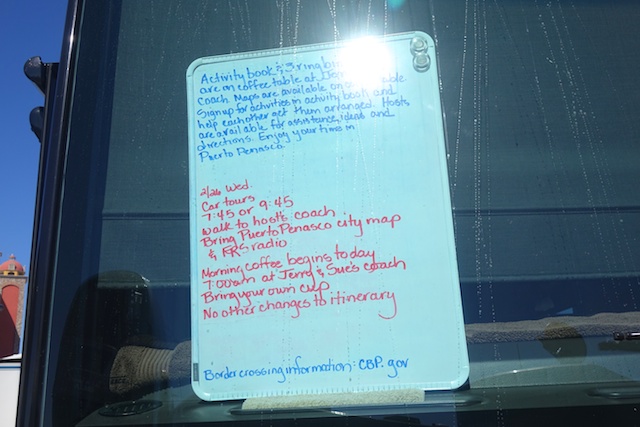 Activity book & 3 ring bin
are on coffee table at Jerr
Coach. Maps are available on able
Sign up for activities in activity book and
help each other get them arranged. Hosts
are available for assistance, ideas and
directions. Enjoy your time in
Puerto Penasco.
2/26 Wed.
Car tours
7:45 or 9:45
Walk to host's coach
Bring Puerto Penasco city map
& FRS radio
Morning coffee begins today
7:00am at Jerry & Sue's coach
Bring your own cup
No other changes to itinerary
Border crossing information: CBP.gov